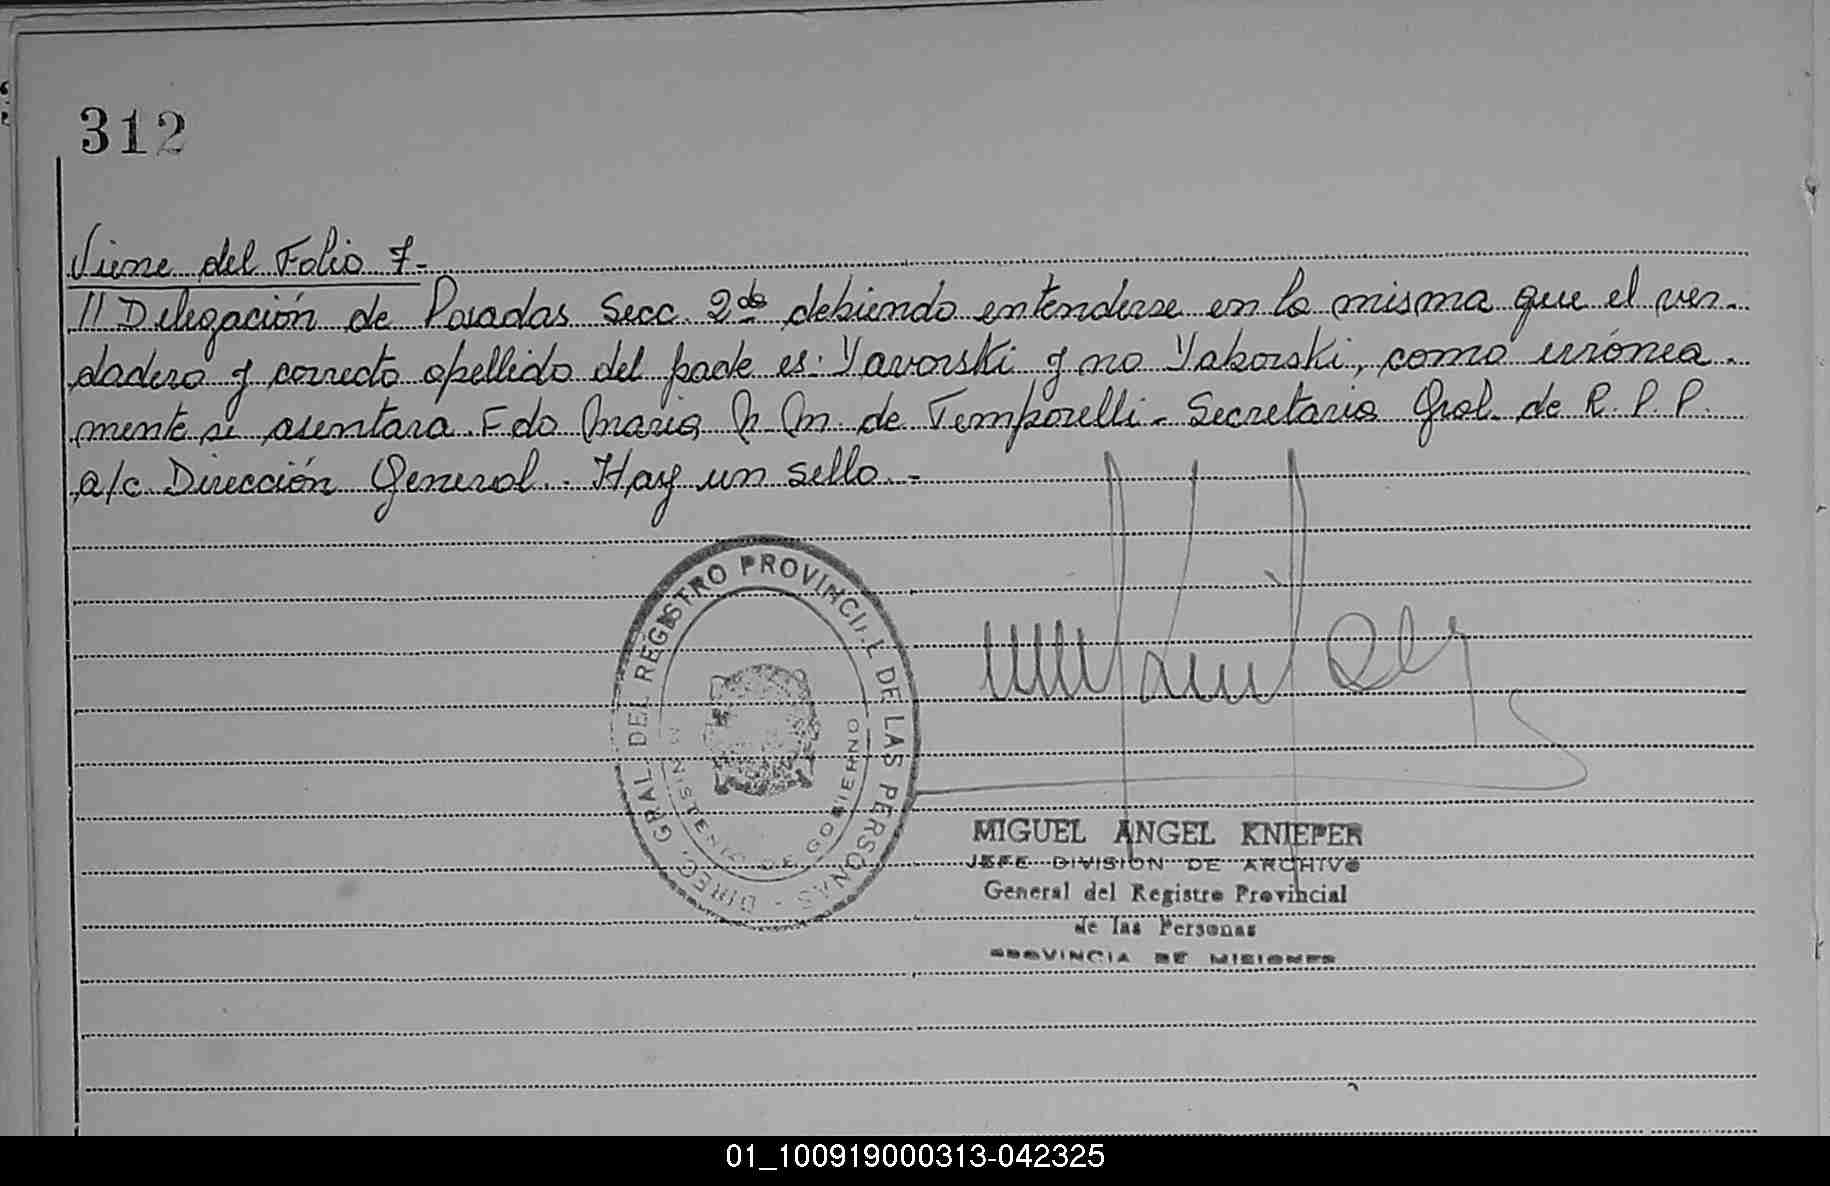 312
Viene del Folio 7.-
// Delegación de Posadas Secc. 2da debiendo entenderse en la misma que el ver-
dadero y correcto apellido del padre es: Yavorski y no Yaborski, como errónea-
mente se asentara. Fdo Maria N. M. de Temporelli - Secretaria Gral. de R. P. P.
a/c Dirección General.. Hay un sello.-
DIREC. GRAL. DEL REGISTRO PROVINCIAL DE LAS PERSONAS -
MINISTERIO DE GOBIERNO
MIGUEL ANGEL KNIEPER
JEFE DIVISION DE ARCHIVO
General del Registro Provincial
de las Personas
PROVINCIA DE MISIONES
01_100919000313-042325